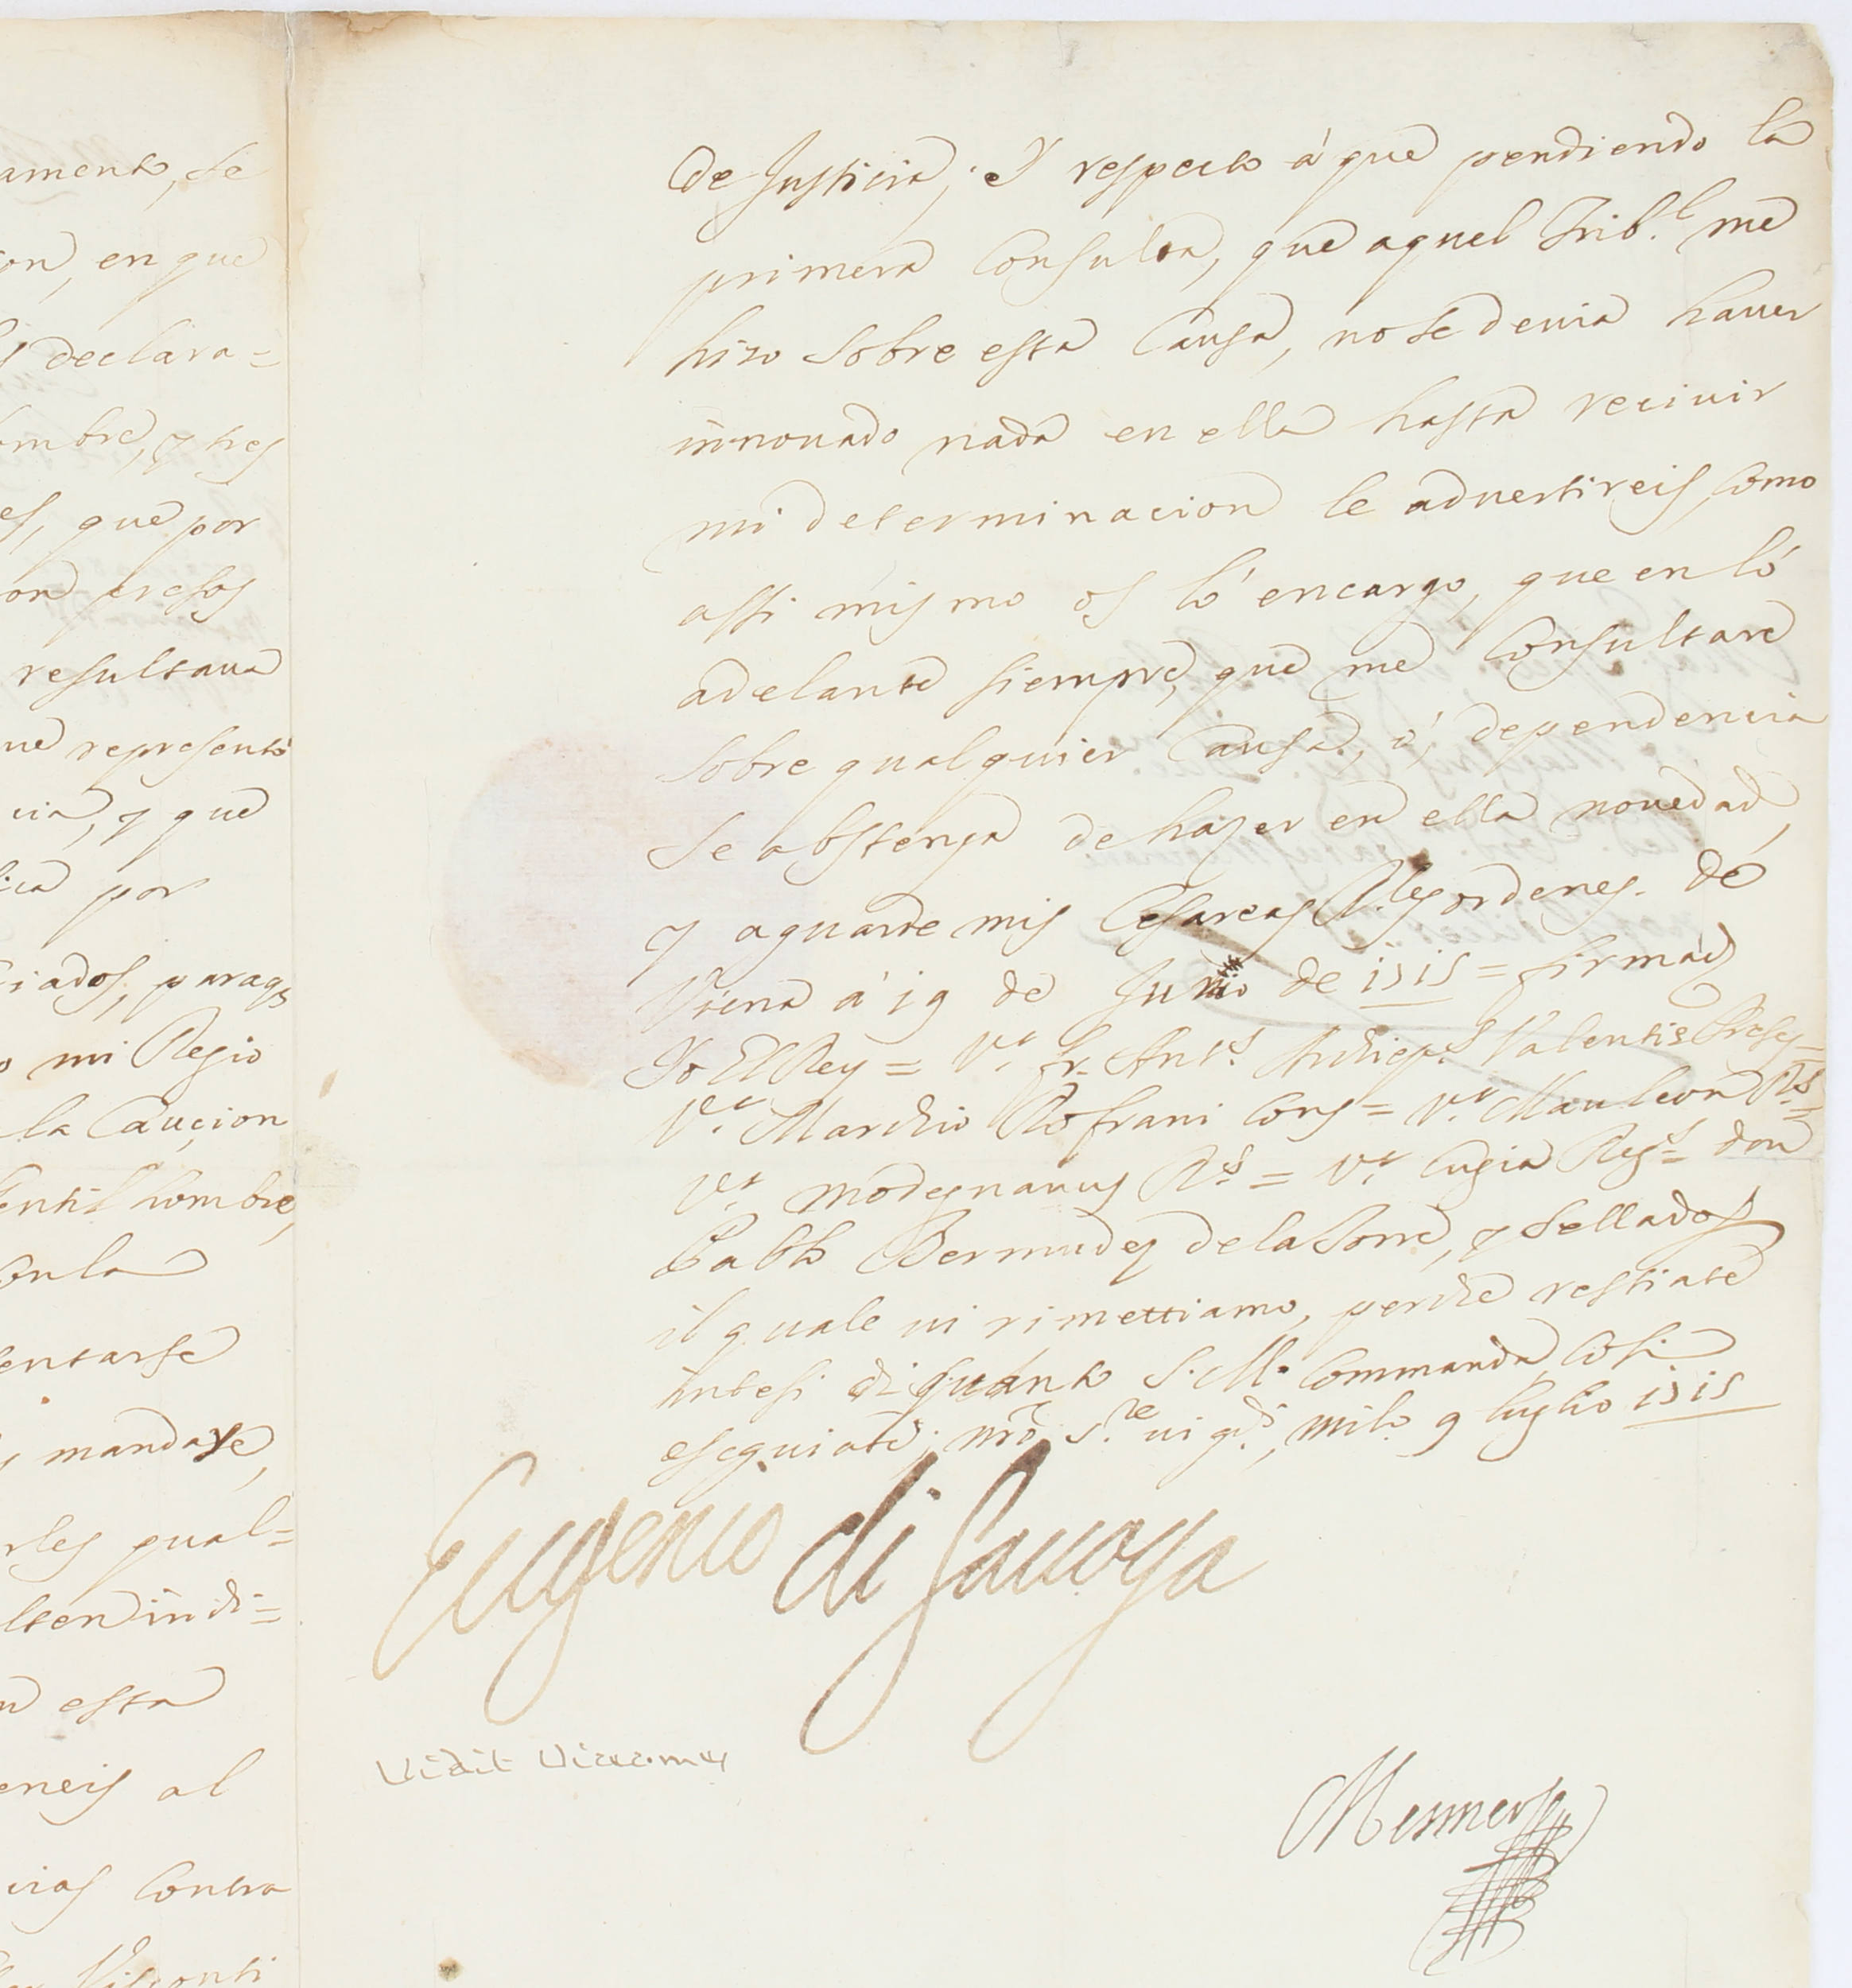 amento, se
on, en que
declara=
ombre, y tres
es, que por
on presos
resultaua
ue representó
cia, y que
por
ciados, paraq
mi Regio
la Caucion
entil hombre,
con la
entarse
mandase,
rles qual=
lten indi=
esta
eneis al
cias contra
Visconti
de Justicia; Y respecto à que pendiendo la
primera Consulta, que aquel Trib.l me
hizo sobre esta Causa, no se deuia hauer
innouado nada en ella hasta reciuir
mi determinacion le aduertireis, como
assi mismo os ló encargo, que en ló
adelante siempre, que me Consultare
sobre qualquier Causa, ó, dependencia
se abstenga de hazer en ella nouedad,
y aguarde mis Cesareas R.les ordenes. De
Viena á 19 de Junio de 1715 = firmad
Yo El Rey = V.t fr. Ant.s Archiep.s Valentis Preses=
V.t Marchio Rofrani Cons = V.t Mauleon R.s=
V.t Modegnanus R.s = V.t Cugia Reg.s= don
Pablo Bermudez de la Torre, y sellado
il quale ui rimettiamo, perche restiate
intesi di quanto S. M. Commanda, cosi
eseguiate; nrõ S.re ui gd.i, Mil.o 9 luglio 1715
Eugenio di Sauoya
Vidit Vicecomes